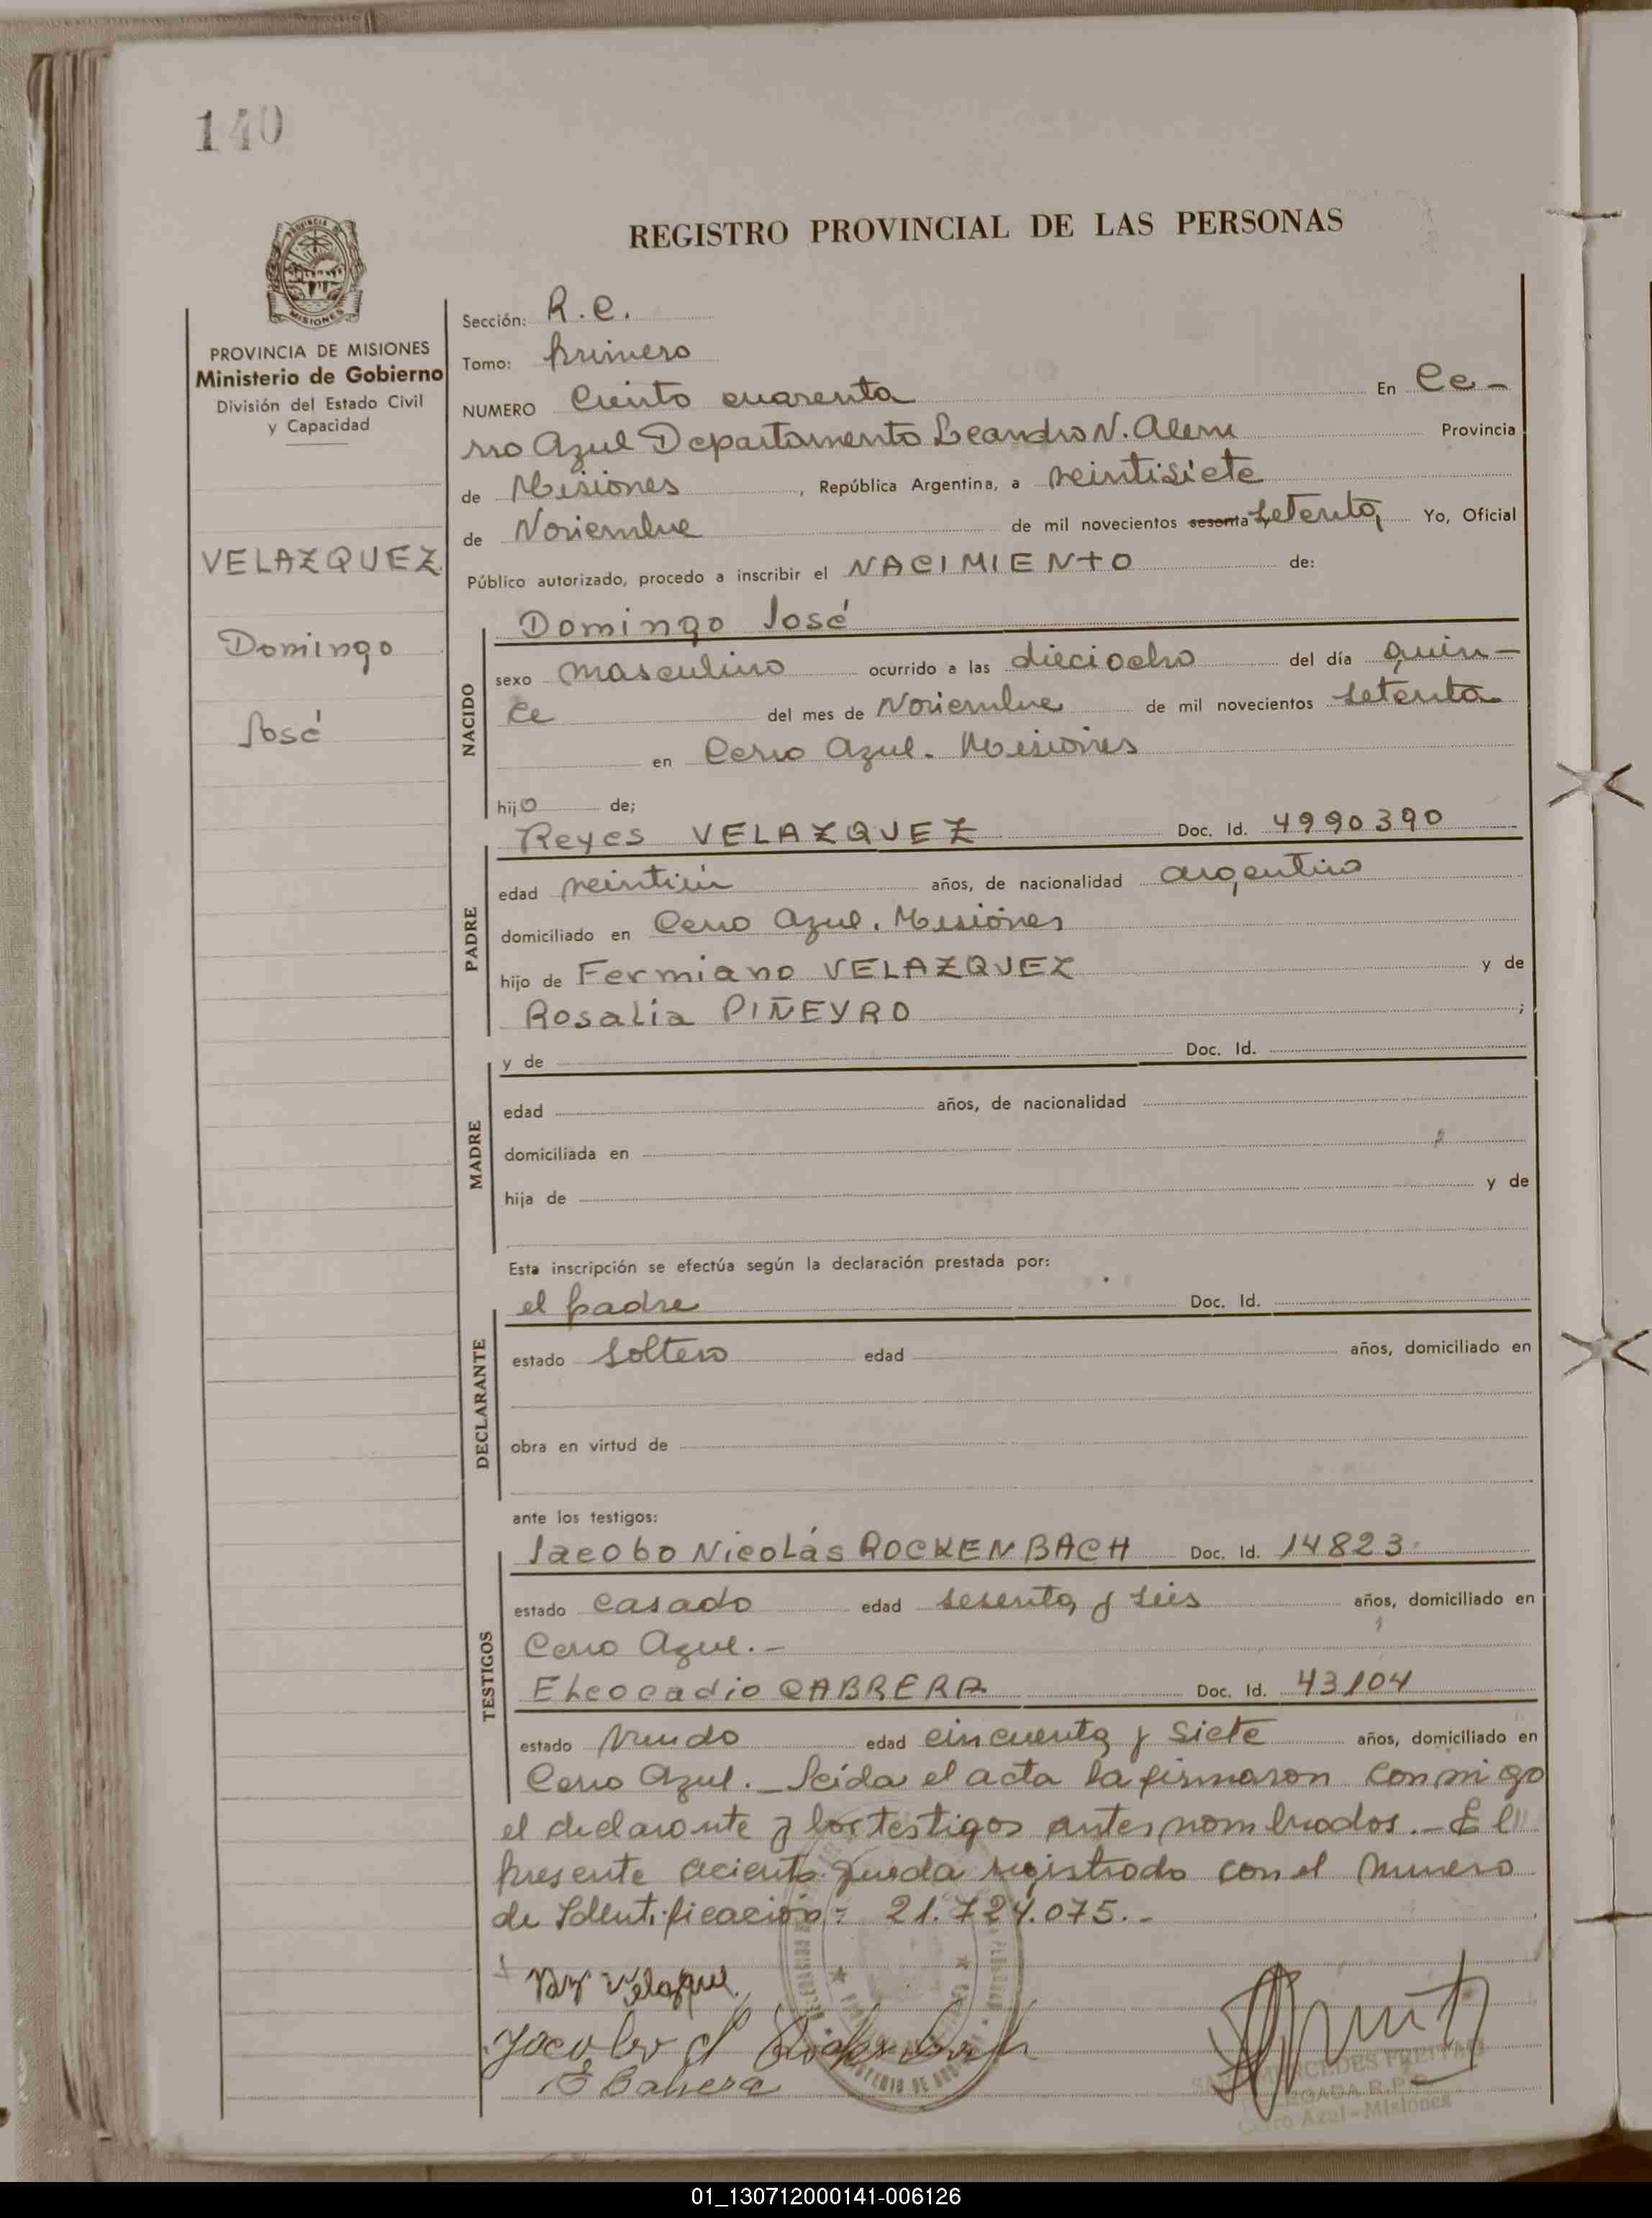 140
REGISTRO PROVINCIAL DE LAS PERSONAS
MISIONES
PROVINCIA DE MISIONES
Ministerio de Gobierno
División del Estado Civil
y Capacidad
VELAZQUEZ
Domingo
José
Sección: R.C.
Tomo: Primero
NUMERO Ciento cuarenta En Ce-
rro Azul Departamento Leandro N. Alem Provincia
de Misiones, República Argentina, a veintisiete
de Noviembre de mil novecientos sesenta y setenta, Yo, Oficial
Público autorizado, procedo a inscribir el NACIMIENTO de:
NACIDO
Domingo José
sexo masculino ocurrido a las dieciocho del día quin-
ce del mes de Noviembre de mil novecientos setenta
en Cerro Azul. Misiones
hijo de;
PADRE
Reyes VELAZQUEZ Doc. Id. 4990390
edad veintiún años, de nacionalidad argentino
domiciliado en Cerro Azul. Misiones
hijo de Fermiano VELAZQUEZ y de
Rosalia PIÑEYRO ;
MADRE
y de Doc. Id.
edad años, de nacionalidad
domiciliada en
hija de y de
Esta inscripción se efectúa según la declaración prestada por:
DECLARANTE
el padre Doc. Id.
estado soltero edad años, domiciliado en
obra en virtud de
ante los testigos:
TESTIGOS
Jacobo Nicolás ROCKENBACH Doc. Id. 14823
estado casado edad sesenta y seis años, domiciliado en
Cerro Azul.-
Eleocadio CABRERA Doc. Id. 43104
estado Viudo edad cincuenta y siete años, domiciliado en
Cerro Azul._ Leída el acta la firmaron conmigo
el declarante y los testigos antes nombrados.- El
presente aciento queda registrado con el numero
de Identificación: 21.724.075.-
Velazquez
Jacobo N Rockenbach
E Cabrera
MERCEDES FREITAG
DELEGADA R.P.P.
Cerro Azul-Misiones
01_130712000141-006126